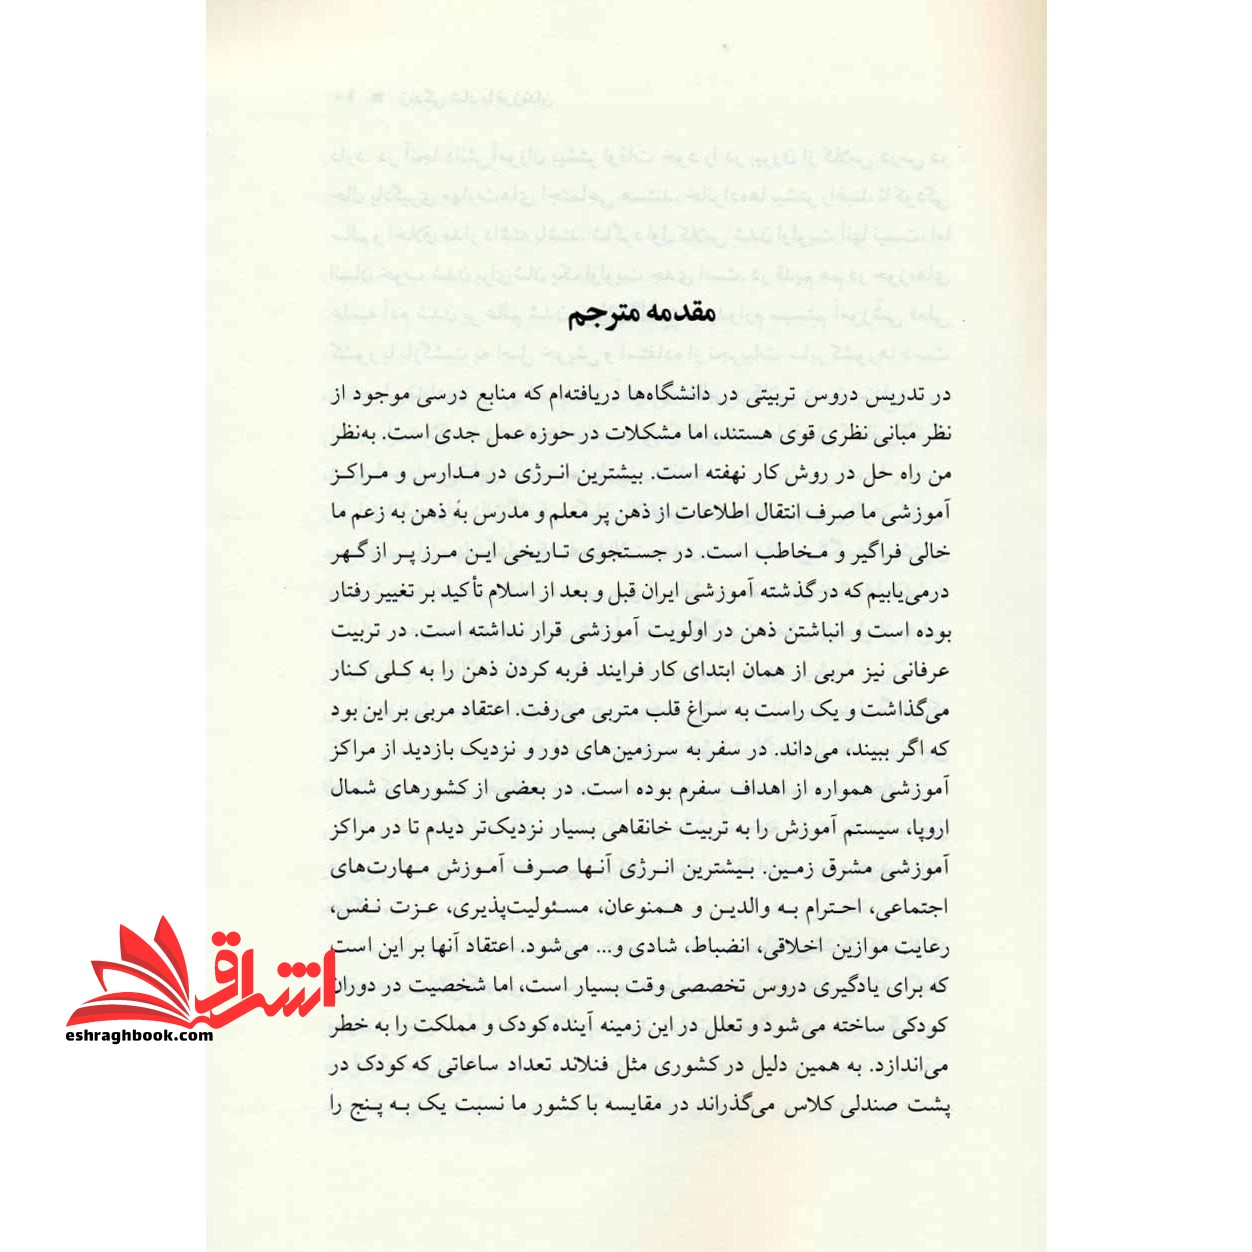 مقدمه مترجم
در تدریس دروس تربیتی در دانشگاه‌ها دریافته‌ام که منابع درسی موجود از
نظر مبانی نظری قوی هستند، اما مشکلات در حوزه عمل جدی است. به‌نظر
من راه حل در روش کار نهفته است. بیشترین انرژی در مدارس و مراکز
آموزشی ما صرف انتقال اطلاعات از ذهن پر معلم و مدرس به ذهن به زعم ما
خالی فراگیر و مخاطب است. در جستجوی تاریخی این مرز پر از گهر
درمی‌یابیم که در گذشته آموزشی ایران قبل و بعد از اسلام تأکید بر تغییر رفتار
بوده است و انباشتن ذهن در اولویت آموزشی قرار نداشته است. در تربیت
عرفانی نیز مربی از همان ابتدای کار فرایند فربه کردن ذهن را به کلی کنار
می‌گذاشت و یک راست به سراغ قلب متربی می‌رفت. اعتقاد مربی بر این بود
که اگر ببیند، می‌داند. در سفر به سرزمین‌های دور و نزدیک بازدید از مراکز
آموزشی همواره از اهداف سفرم بوده است. در بعضی از کشورهای شمال
اروپا، سیستم آموزش را به تربیت خانقاهی بسیار نزدیک‌تر دیدم تا در مراکز
آموزشی مشرق زمین. بیشترین انرژی آنها صرف آموزش مهارت‌های
اجتماعی، احترام به والدین و همنوعان، مسئولیت‌پذیری، عزت نفس،
رعایت موازین اخلاقی، انضباط، شادی و... می‌شود. اعتقاد آنها بر این است
که برای یادگیری دروس تخصصی وقت بسیار است، اما شخصیت در دوران
کودکی ساخته می‌شود و تعلل در این زمینه آینده کودک و مملکت را به خطر
می‌اندازد. به همین دلیل در کشوری مثل فنلاند تعداد ساعاتی که کودک در
پشت صندلی کلاس می‌گذراند در مقایسه با کشور ما نسبت یک به پنج را
اشراق
eshraghbook.com